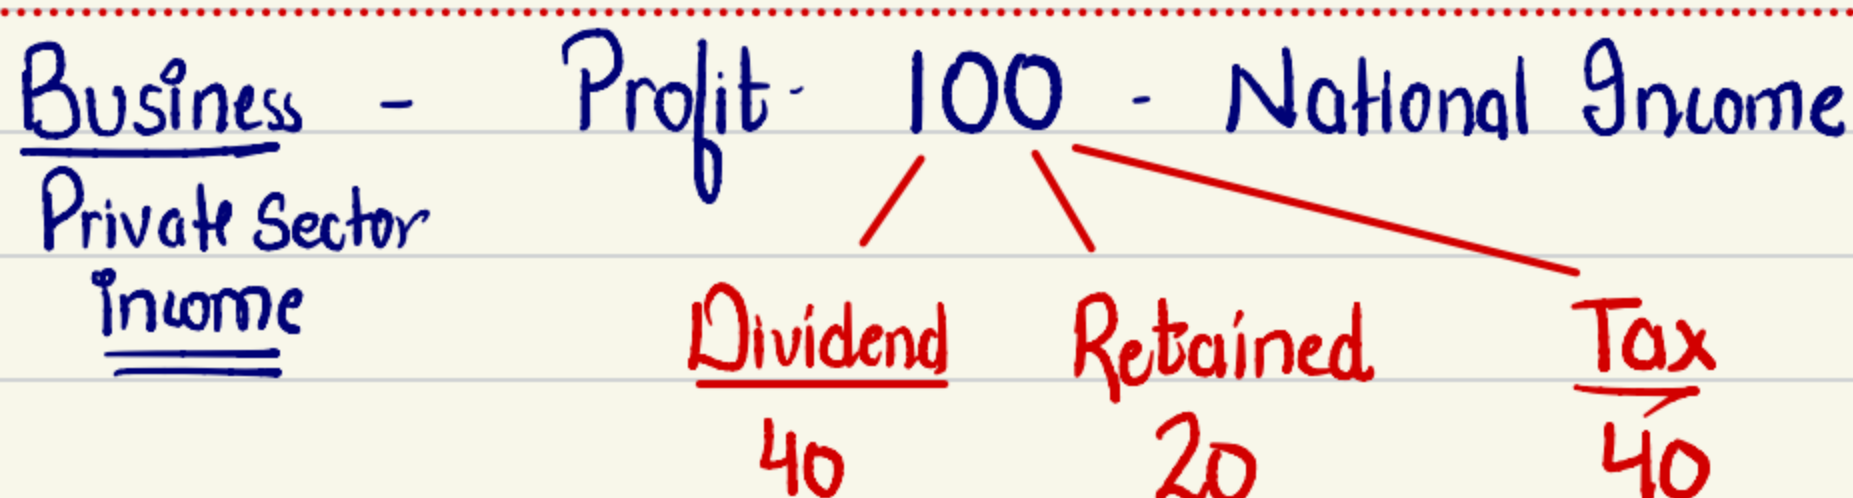 Business - Profit - 100 - National Income
Private Sector
income
Dividend Retained Tax
40 20 40